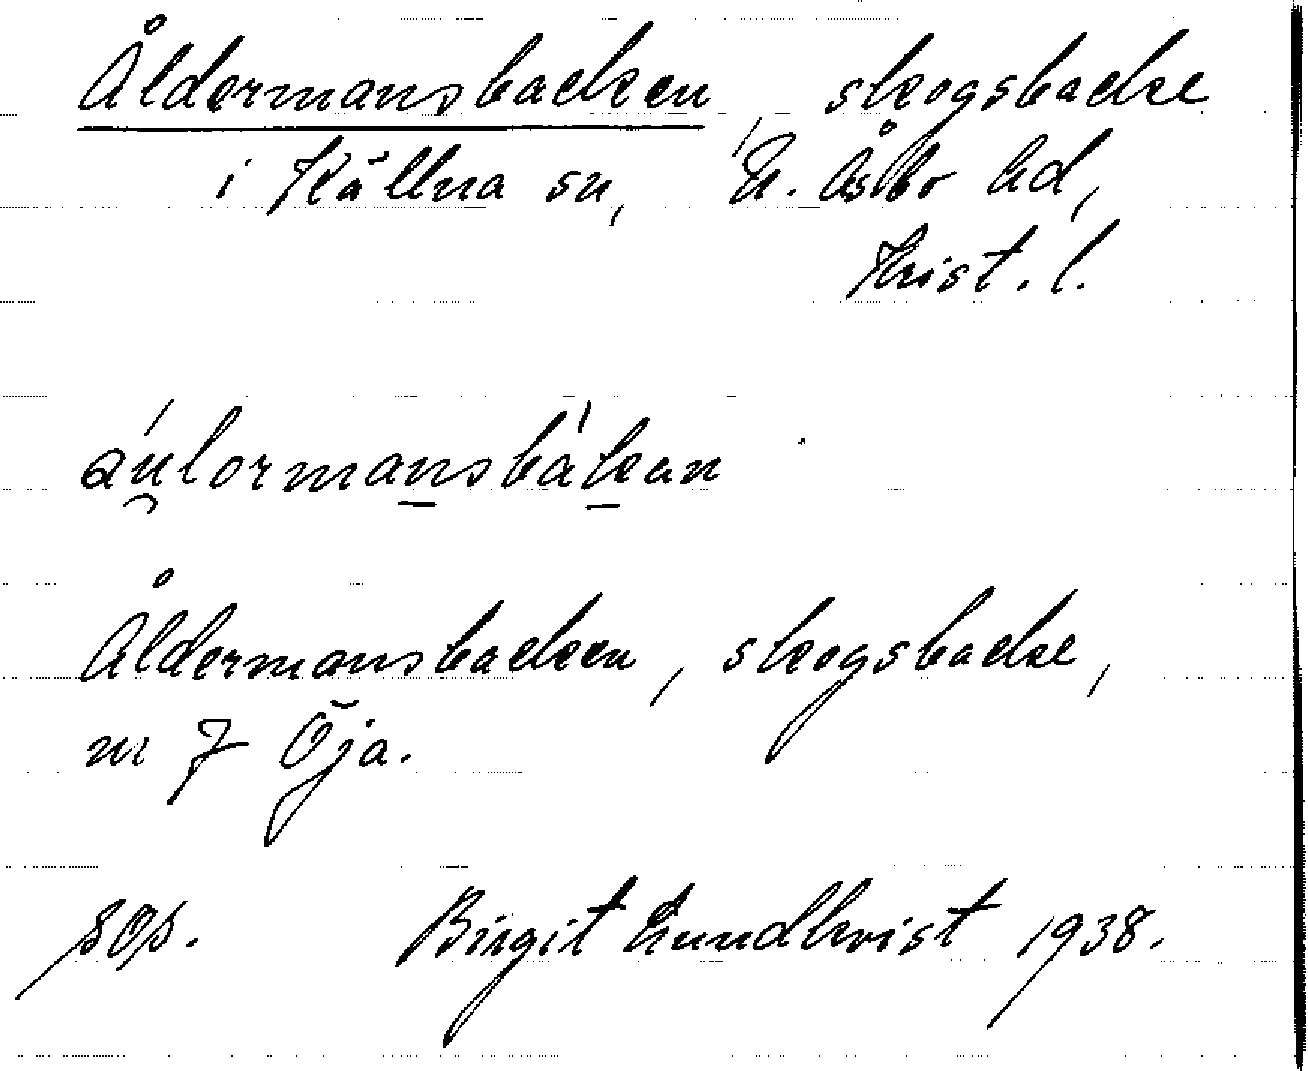 Åldermansbacken, skogsbacke
i Källna sn, N. Åsbo hd,
Krist. l.
Åldermansbacken, skogsbacke,
nr 7 Öja.
Birgit Lundkvist 1938.